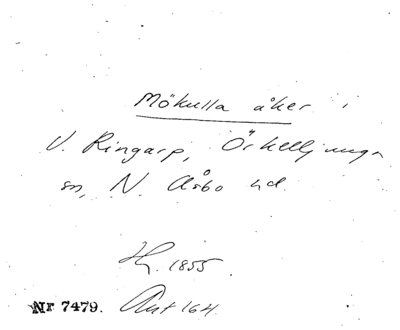 Mökulla åker i
V. Ringarp, Örkelljunga
sn, N. Åsbo hd.
Hy. 1855.
Nr 7479. Ant 164.